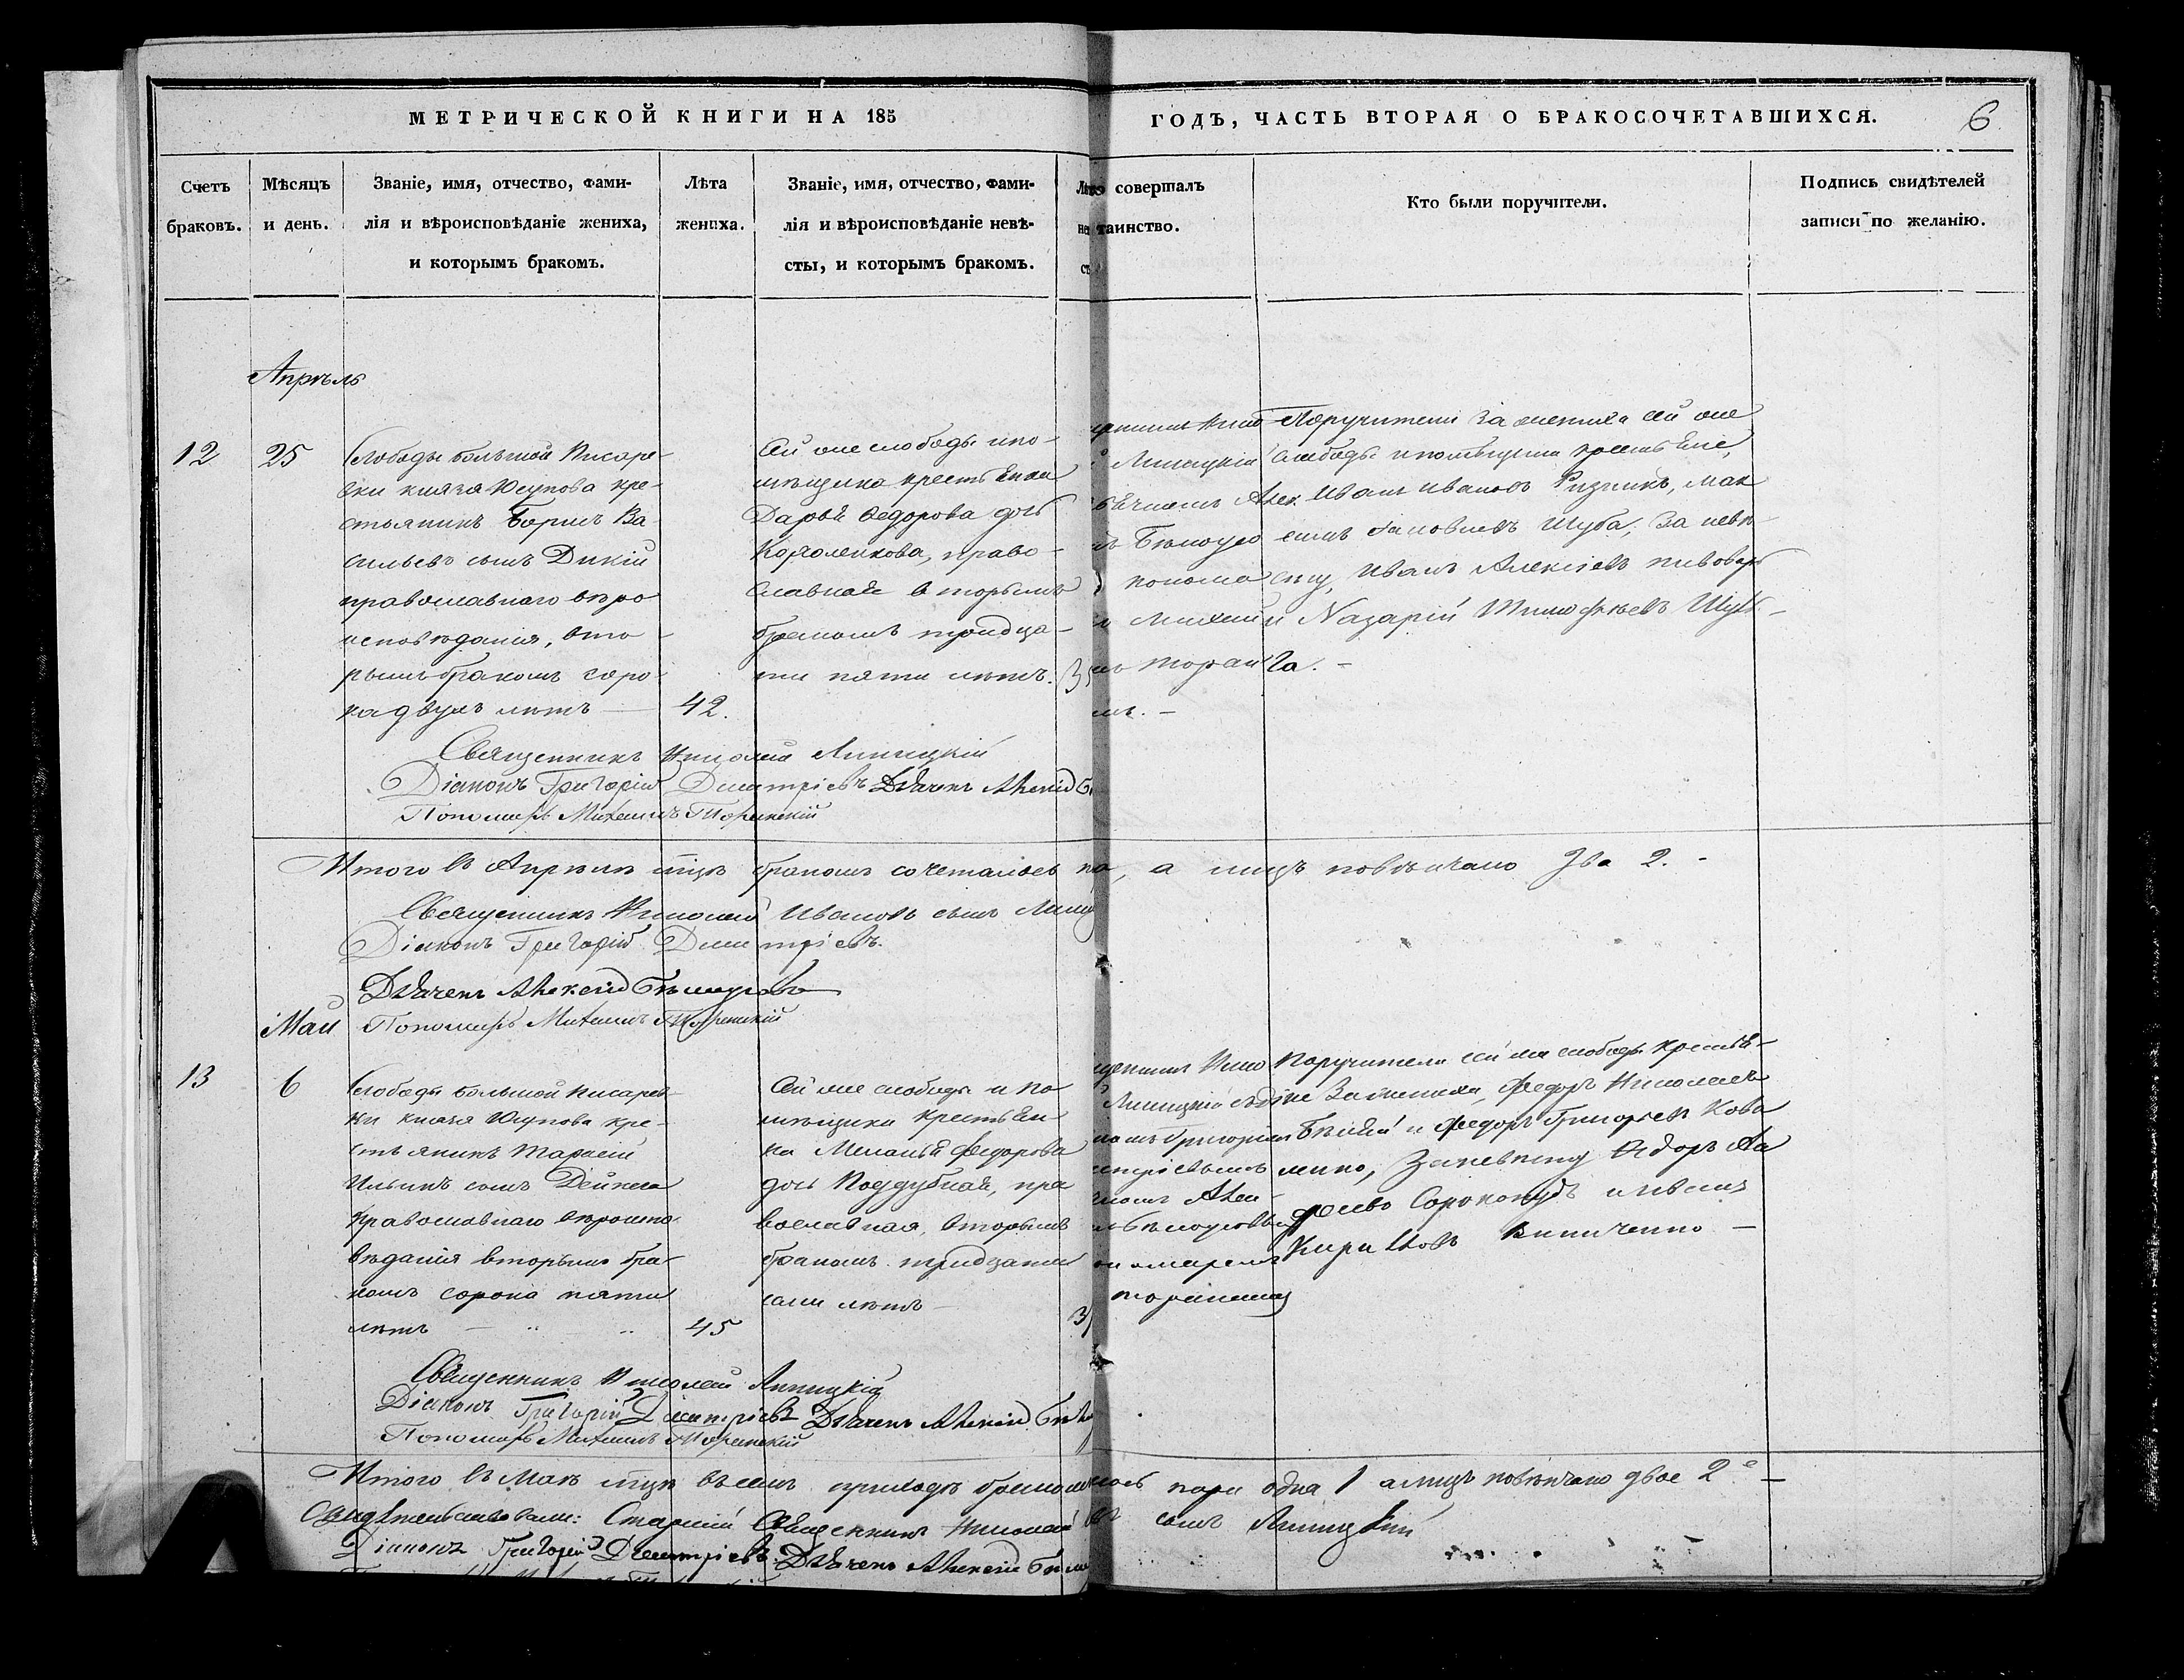 МЕТРИЧЕСКОЙ КНИГИ НА 185
ГОДЪ, ЧАСТЬ ВТОРАЯ О БРАКОСОЧЕТАВШИХСЯ.
6
Счетъ
браковъ.
Мѣсяцъ
и день.
Званіе, имя, отчество, фами-
лія и вѣроисповѣданіе жениха,
и которымъ бракомъ.
Лѣта
жениха.
Званіе, имя, отчество, фами-
лія и вѣроисповѣданіе невѣ-
сты, и которымъ бракомъ.
совершалъ
таинство.
Кто были поручители.
Подпись свидѣтелей
записи по желанію.
Апрѣль
12
25
Слободы большой Писаре-
вки князя Юсупова кре-
стьянинъ Борисъ Ва-
сильевъ сынъ Дикій
православнаго вѣро
исповѣданія, вто-
рымъ бракомъ соро-
ка двухъ лѣтъ —
42.
Сей же слободы и по-
мѣщика крестьянка
Дарья Федорова дочь
Коваленкова, право-
славная вторымъ
бракомъ тридца-
ти пяти лѣтъ.
Поручители за жениха сей же
слободы и помѣщика крестьяне,
Иванъ Ивановъ Ризникъ, Мак
симъ Яковлевъ Шуба, за невѣ-
сту, Иванъ Алексіевъ пивоваръ
и Назарій Тимофѣевъ Шуб-
Священникъ Николай Липицкій
Діаконъ Григорій Димитріевъ Дьячекъ Алексій
Пономарь Михаилъ Торанскій
Итого въ Апрѣлѣ мцѣ бракомъ сочеталось па, а лицъ повѣнчано два 2. -
Священникъ Николай Ивановъ сынъ
Діаконъ Григорій Димитріевъ.
Дьячекъ Алексій Бѣлоусовъ
Май
Пономарь Михаилъ Торанскій
13
6
Слободы большой Писарев-
ки князя Юсупова кре-
стьянинъ Тарасій
Ильинъ сынъ Дейнека
православнаго вѣроиспо-
вѣданія вторымъ бра-
комъ сорока пяти
лѣтъ —
45
Сей же слободы и по
мѣщика крестьян-
ка Меланья Федорова
дочь Поддубная, пра
вославная, вторымъ
бракомъ тридцати
семи лѣтъ —
Поручители сей же слободы крестья-
не за жениха, Федоръ Николаевъ
Бѣлый и Федоръ Григорьевъ Кова
ленко, за невѣсту
Сорокопудъ и Иванъ
Кириловъ Виниченко —
Священникъ Николай Липицкій
Діаконъ Григорій Димитріевъ Дьячекъ Алексій
Пономарь Михаилъ Торанскій
Итого въ Маѣ мцѣ всѣхъ приходѣ бракомъ лось пара одна 1 а лицъ повѣнчано двое 2е —
Свидѣтельствовали: Старшій Священникъ Николай сынъ Липицкій
Діаконъ Григорій Димитріевъ. Дьячекъ Алексій